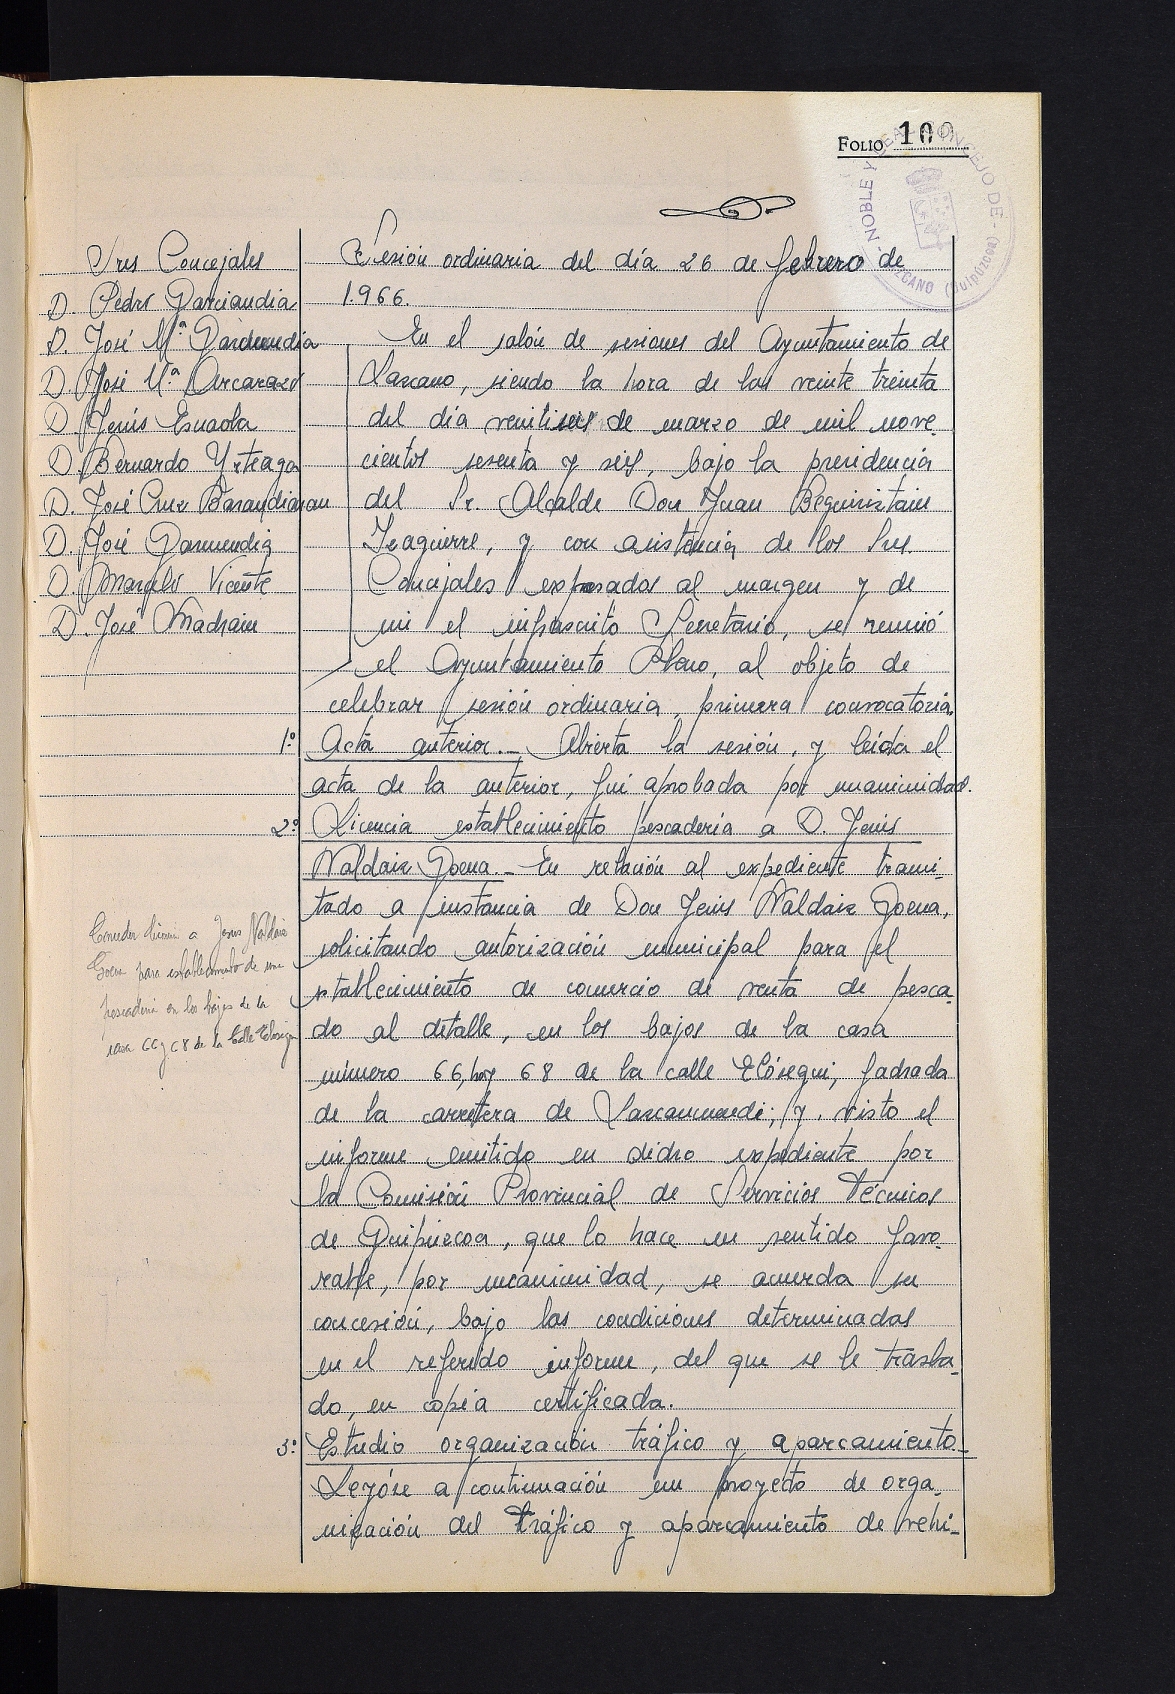 FOLIO 100
NOBLE Y LEAL CONCEJO DE
LAZCANO (Guipúzcoa)
Sres Concejales
D. Pedro Garciandia
D. José Mª Garmendia
D. José Mª Arcarazo
D. Jesús Esnaola
D. Bernardo Yrteaga
D. José Cruz Barandiaran
D. José Garmendia
D. Marcelo Vicente
D. José Madrazu
Sesión ordinaria del día 26 de febrero de
1.966.
En el salón de sesiones del Ayuntamiento de
Lazcano, siendo la hora de las veinte treinta
del día veintiseis de marzo de mil nove-
cientos sesenta y seis, bajo la presidencia
del Sr. Alcalde Don Juan Beguiristain
Izaguirre, y con asistencia de los Sres.
Concejales expresados al margen y de
mi el infrascrito Secretario, se reunió
el Ayuntamiento Pleno, al objeto de
celebrar sesión ordinaria, primera convocatoria.
1º Acta anterior.- Abierta la sesión, y leída el
acta de la anterior, fué aprobada por unanimidad.
2º Licencia establecimiento pescadería a D. Jesus
Naldaiz Goena.- En relación al expediente trami-
tado a instancia de Don Jesus Naldaiz Goena,
solicitando autorización municipal para el
establecimiento de comercio de venta de pesca-
do al detalle, en los bajos de la casa
número 66, hoy 68 de la calle Elósegui, fachada
de la carretera de Lazcaomendi; y visto el
informe emitido en dicho expediente por
la Comisión Provincial de Servicios Técnicos
de Guipúzcoa, que lo hace en sentido favo-
rable, por unanimidad, se acuerda su
concesión, bajo las condiciones determinadas
en el referido informe, del que se le trasla-
do, en copia certificada.
Conceder licencia a Jesus Naldaiz
Goena para establecimiento de una
pescaderia en los bajos de la
casa 66 y 68 de la Calle Elosegui
3º Estudio organización tráfico y aparcamiento.-
Leyóse a continuación un proyecto de orga-
nización del tráfico y aparcamiento de vehí-